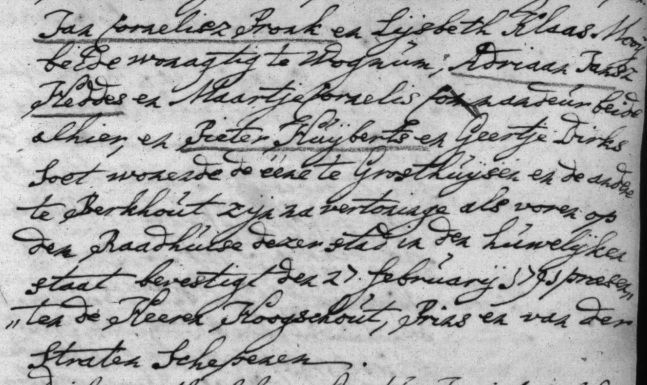 Jan Cornelisz Pronk en Lijsbeth Klaas Mooij
beide wonagtig te Wognúm; Adriaan Jansz
Heddes en Maartje Cornelis Commandeúr beide
alhier, en Pieter Húijberts en Geertje Dirks
Soet wonende de eene te Grosthúijsen en de andere
te Berkhoút zijn na vertoninge als voren op
den Raadhúise dezer stad in den húwelijken
staat bevestigt den 27. febrúarij 1791 præsen„
„ten de Heeren Hoogschoút, Prins en van der
Straten Schepenen.